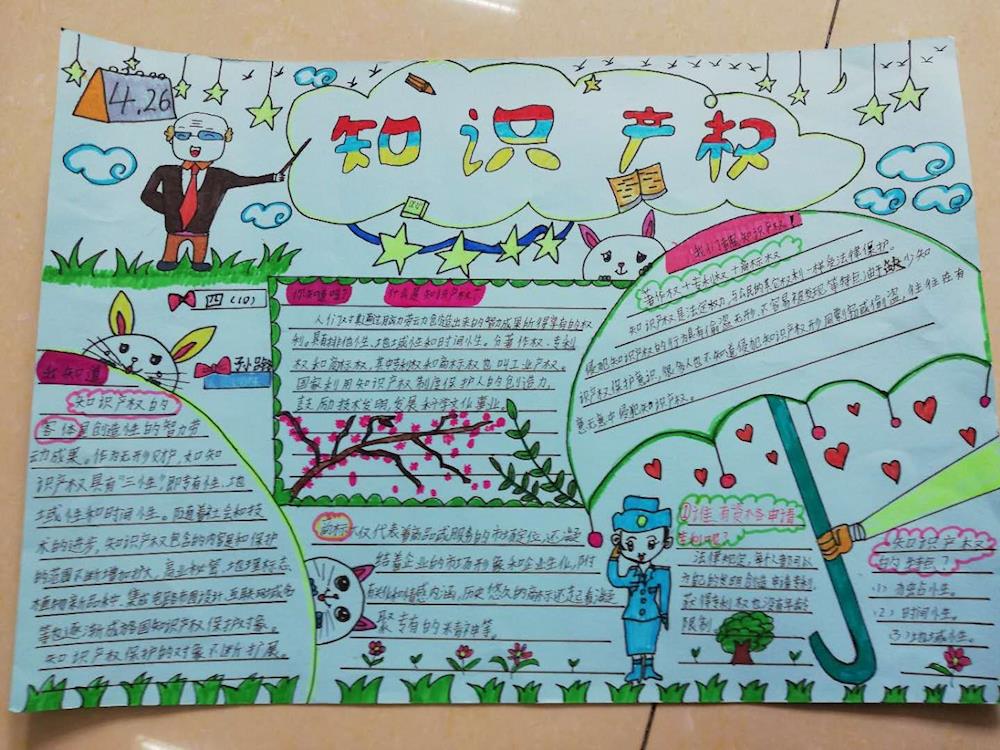 4.26
知识产权
四(10)
你知道吗?
什么是知识产权?
人们对其通过脑力劳动创造出来的智力成果所得享有的权
利。具有排他性、地域性和时间性。分著作权、专利
权和商标权。其中专利权和商标权也叫工业产权。
国家利用知识产权制度保护人的创造力,
鼓励技术发明,发展科学文化事业。
著作权+专利权+商标权
知识产权是法定权力,与公民的其它权利一样受法律保护。
侵犯知识产权的行为具有偷盗无形、不容易被发现等特点,由于缺少知
识产权保护意识,很多人也不知道侵犯知识产权形同剽窃或偷盗,往往在有
意无意中侵犯知识产权。
我知道
知识产权的
客体是创造性的智力劳
动成果。作为无形财产,和知
识产权具有“三性”,即专有性、地
域性和时间性。随着社会和技
术的进步,知识产权包含的内容是和保护
的范围不断增加扩大,商业秘密、地理标志、
植物新品种、集成电路布图设计、互联网域名
等也逐渐成为各国知识产权保护对象。
知识产权保护的对象不断扩展。
商标不仅代表着商品或服务的市场定位,还凝
结着企业的市场形象和企业文化,附
和情感内涵,历史悠久的商标还起着凝
聚专有的精神等。
①谁有资格申请
专利呢?
法律规定,每个人都可以
为自己的发明创造申请专利,
获得专利权也没有年龄
限制。
知识产权
的特点?
(1)独占性。
(2)时间性。
(3)地域性。